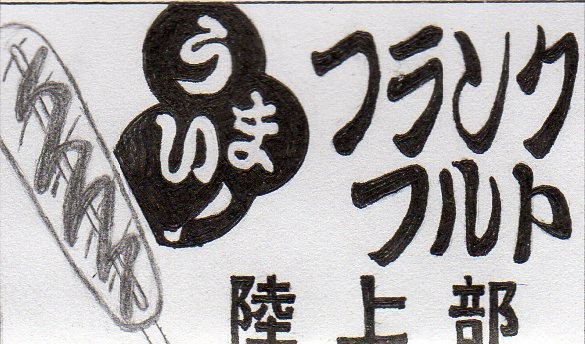 うまい！
フランク
フルト
陸上部